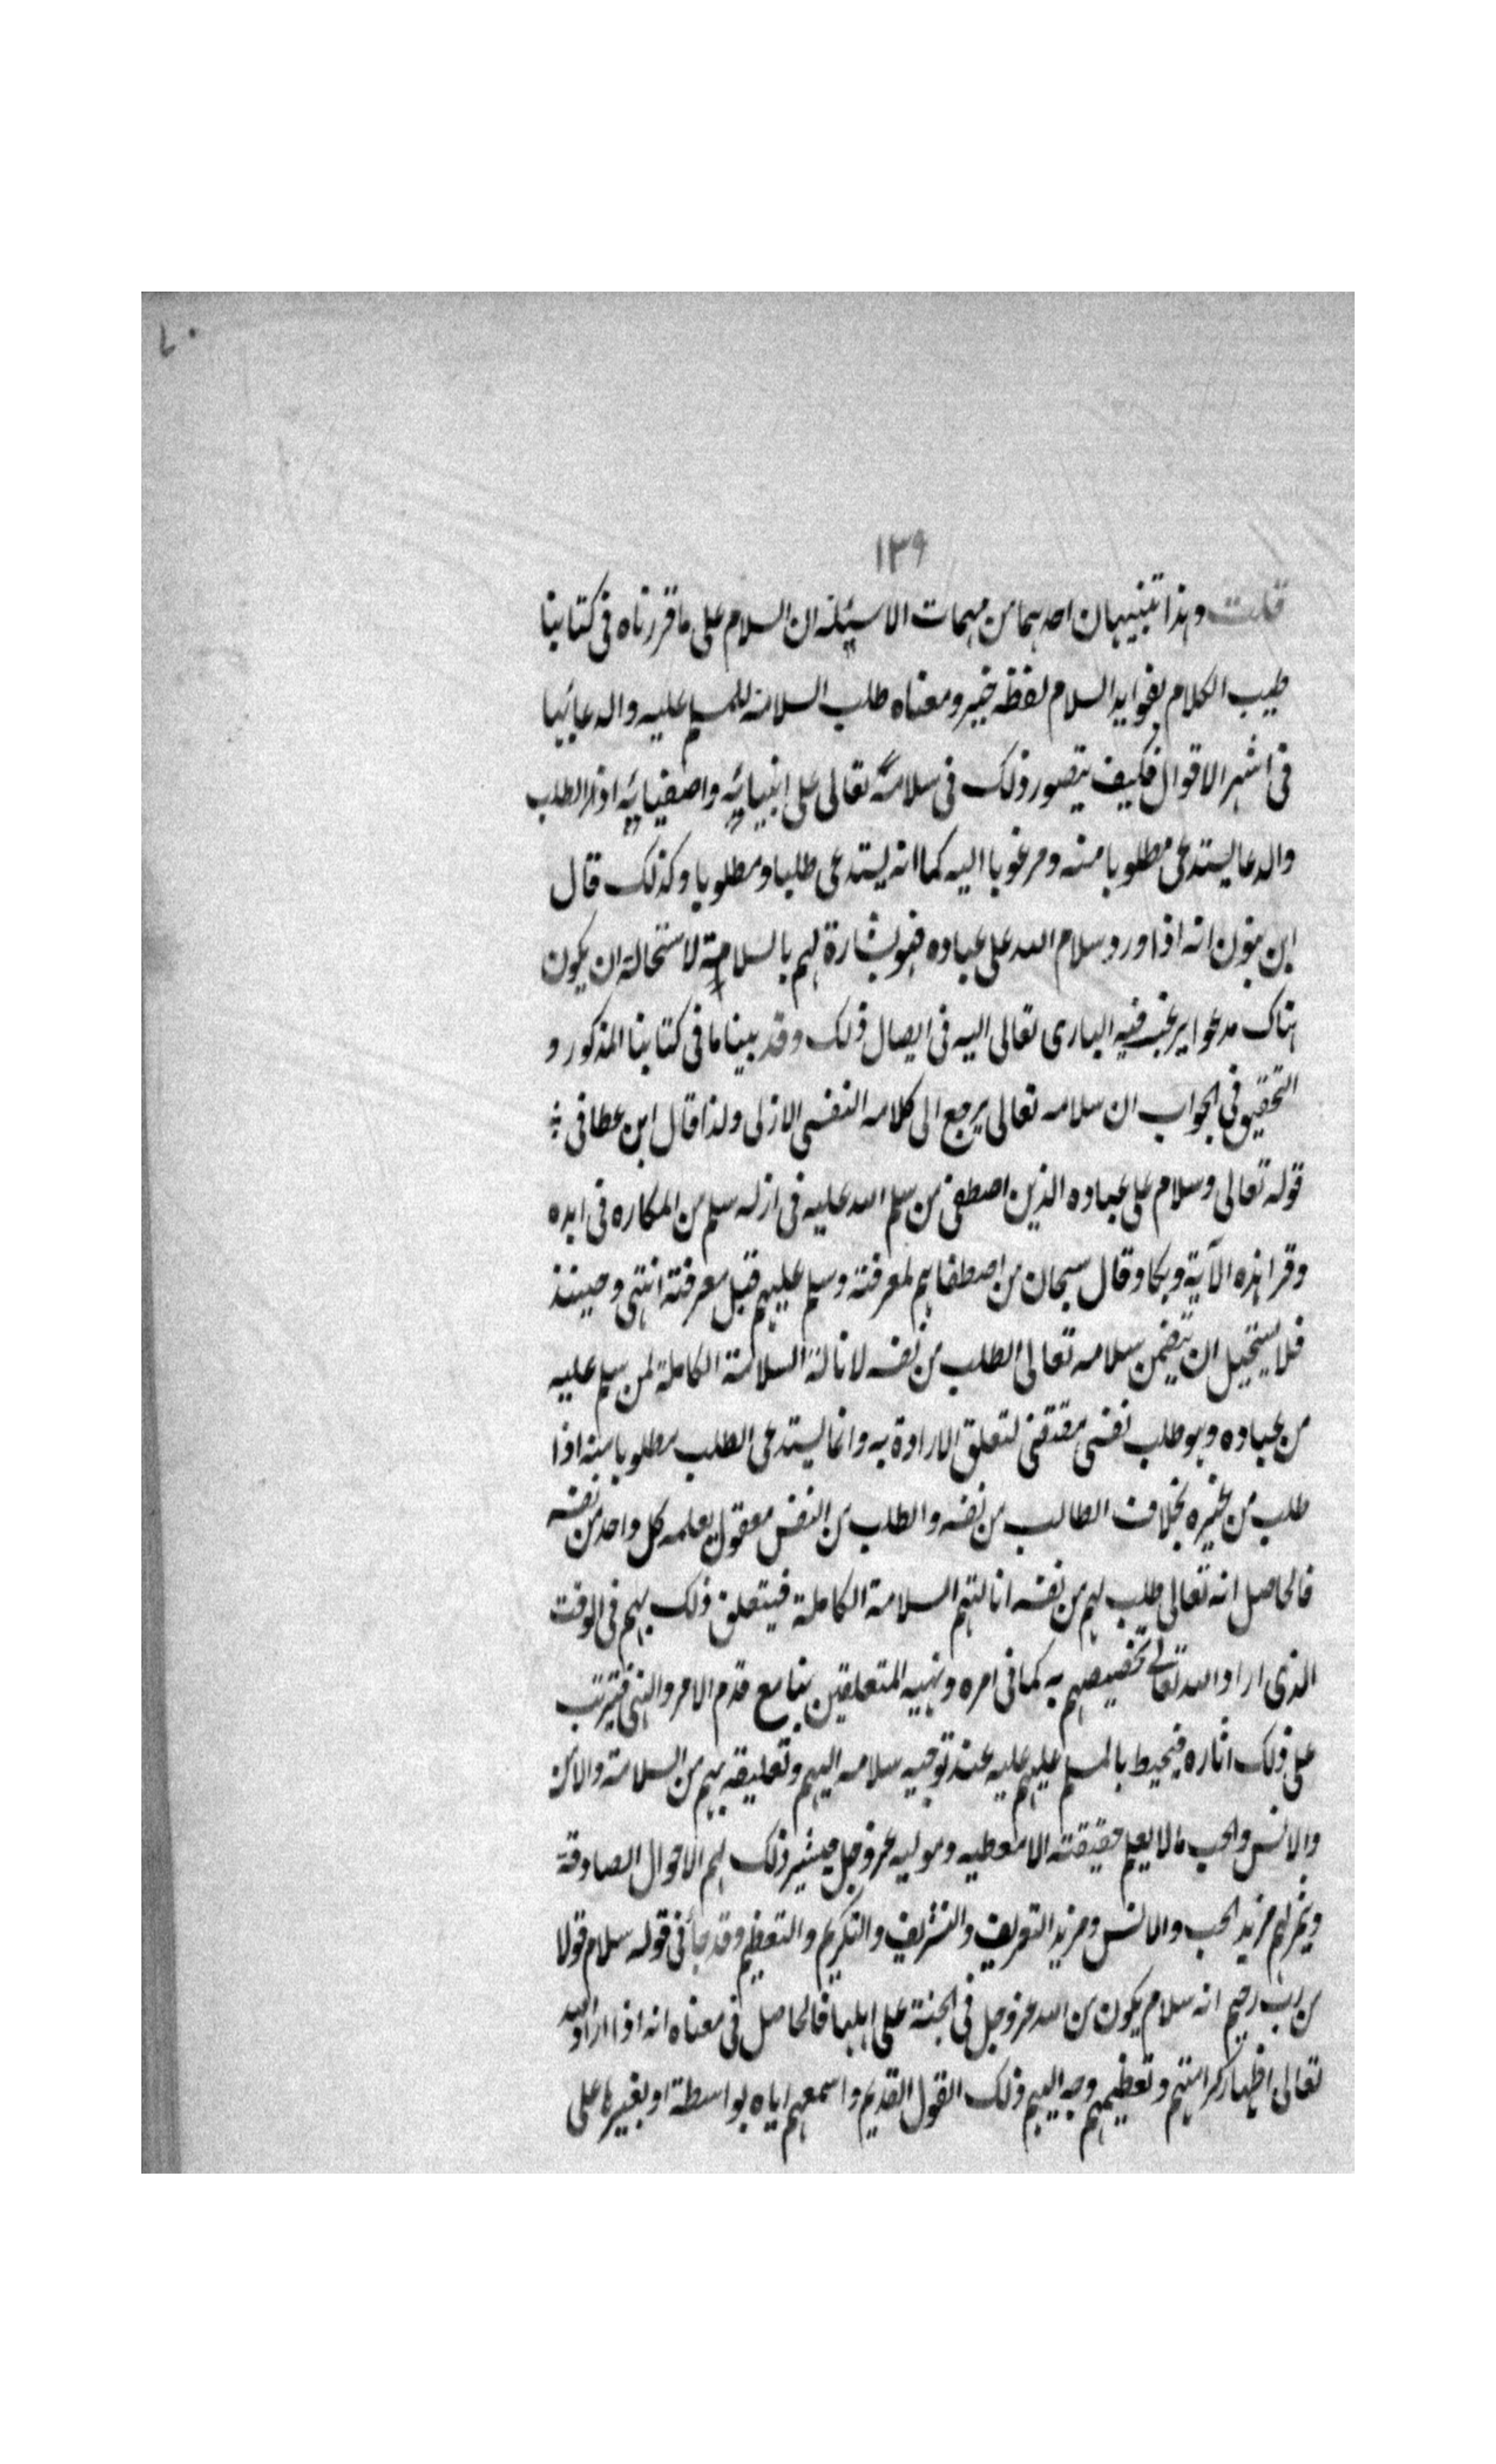 ٧٠
١٣٩
قلت وهذا تنبيهان احدهما من مهمات الاسئلة ان السلام على ما قررناه فى كتابنا
طيب الكلام بفوايد السلام لفظه خبر ومعناه طلب السلامة للمسلم عليه والدعا بها
فى اشهر الاقوال فكيف يتصور ذلك فى سلامه تعالى على انبيائه واصفيائه اذ الطلب
والدعا يستدعى مطلوبا منه ومرغوبا اليه كما انه يستدعى طلبا ومطلوبا وكذلك قال
ابن انه اذا ورد سلام الله على عباده فهو بشارة لهم بالسلامة لاستحالة ان يكون
هناك مدعوا يرغب فيه البارى تعالى اليه فى ايصال ذلك وقد بينا ما فى كتابنا المذكور و
التحقيق فى الجواب ان سلامه تعالى يرجع الى كلامه النفسى الازلى ولذا قال ابن عطا فى
قوله تعالى وسلام على عباده الذين اصطفى من سلم الله عليه فى ازله سلم من المكاره فى ابده
وقرا هذه الآية وبكا وقال سبحان من اصطفاهم لمعرفته وسلم عليهم قبل معرفته انتهى وحينئذ
فلا يستحيل ان يتضمن سلامه تعالى الطلب من نفسه لانالة السلامة الكاملة لمن سلم عليه
من عباده وهو طلب نفسى مقتضى لتعلق الارادة به وانما يستدعى الطلب مطلوبا منه اذا
طلب من غيره بخلاف الطالب من نفسه والطلب من النفس معقول يعلمه كل واحد من نفسه
فالحاصل انه تعالى طلب لهم من نفسه انالتهم السلامة الكاملة فيتعلق ذلك بهم فى الوقت
الذى اراد الله تعالى تخصيصهم به كما فى امره ونهيه المتعلقين بنا مع قدم الامر والنهى فيترتب
على ذلك اثاره فيحيط بالمسلم عليهم عليه عند توجيه سلامه اليهم وتعليقه بهم من السلامة والامن
والانس والحب مالا يعلم حقيقته الا معطيه وموليه عز وجل ذلك لهم الاحوال الصادقة
ويثمر لهم مزيد الحب والانس ومزيد التعريف والتشريف والتكريم والتعظيم وقد جأ فى قوله سلام قولا
من رب رحيم انه سلام يكون من الله عز وجل فى الجنة على اهلها فالحاصل فى معناه انه اذا اراد الله
تعالى اظهار كرامتهم وتعظيمهم وجه اليهم ذلك القول القديم واسمعهم اياه بواسطة او بغيرها على